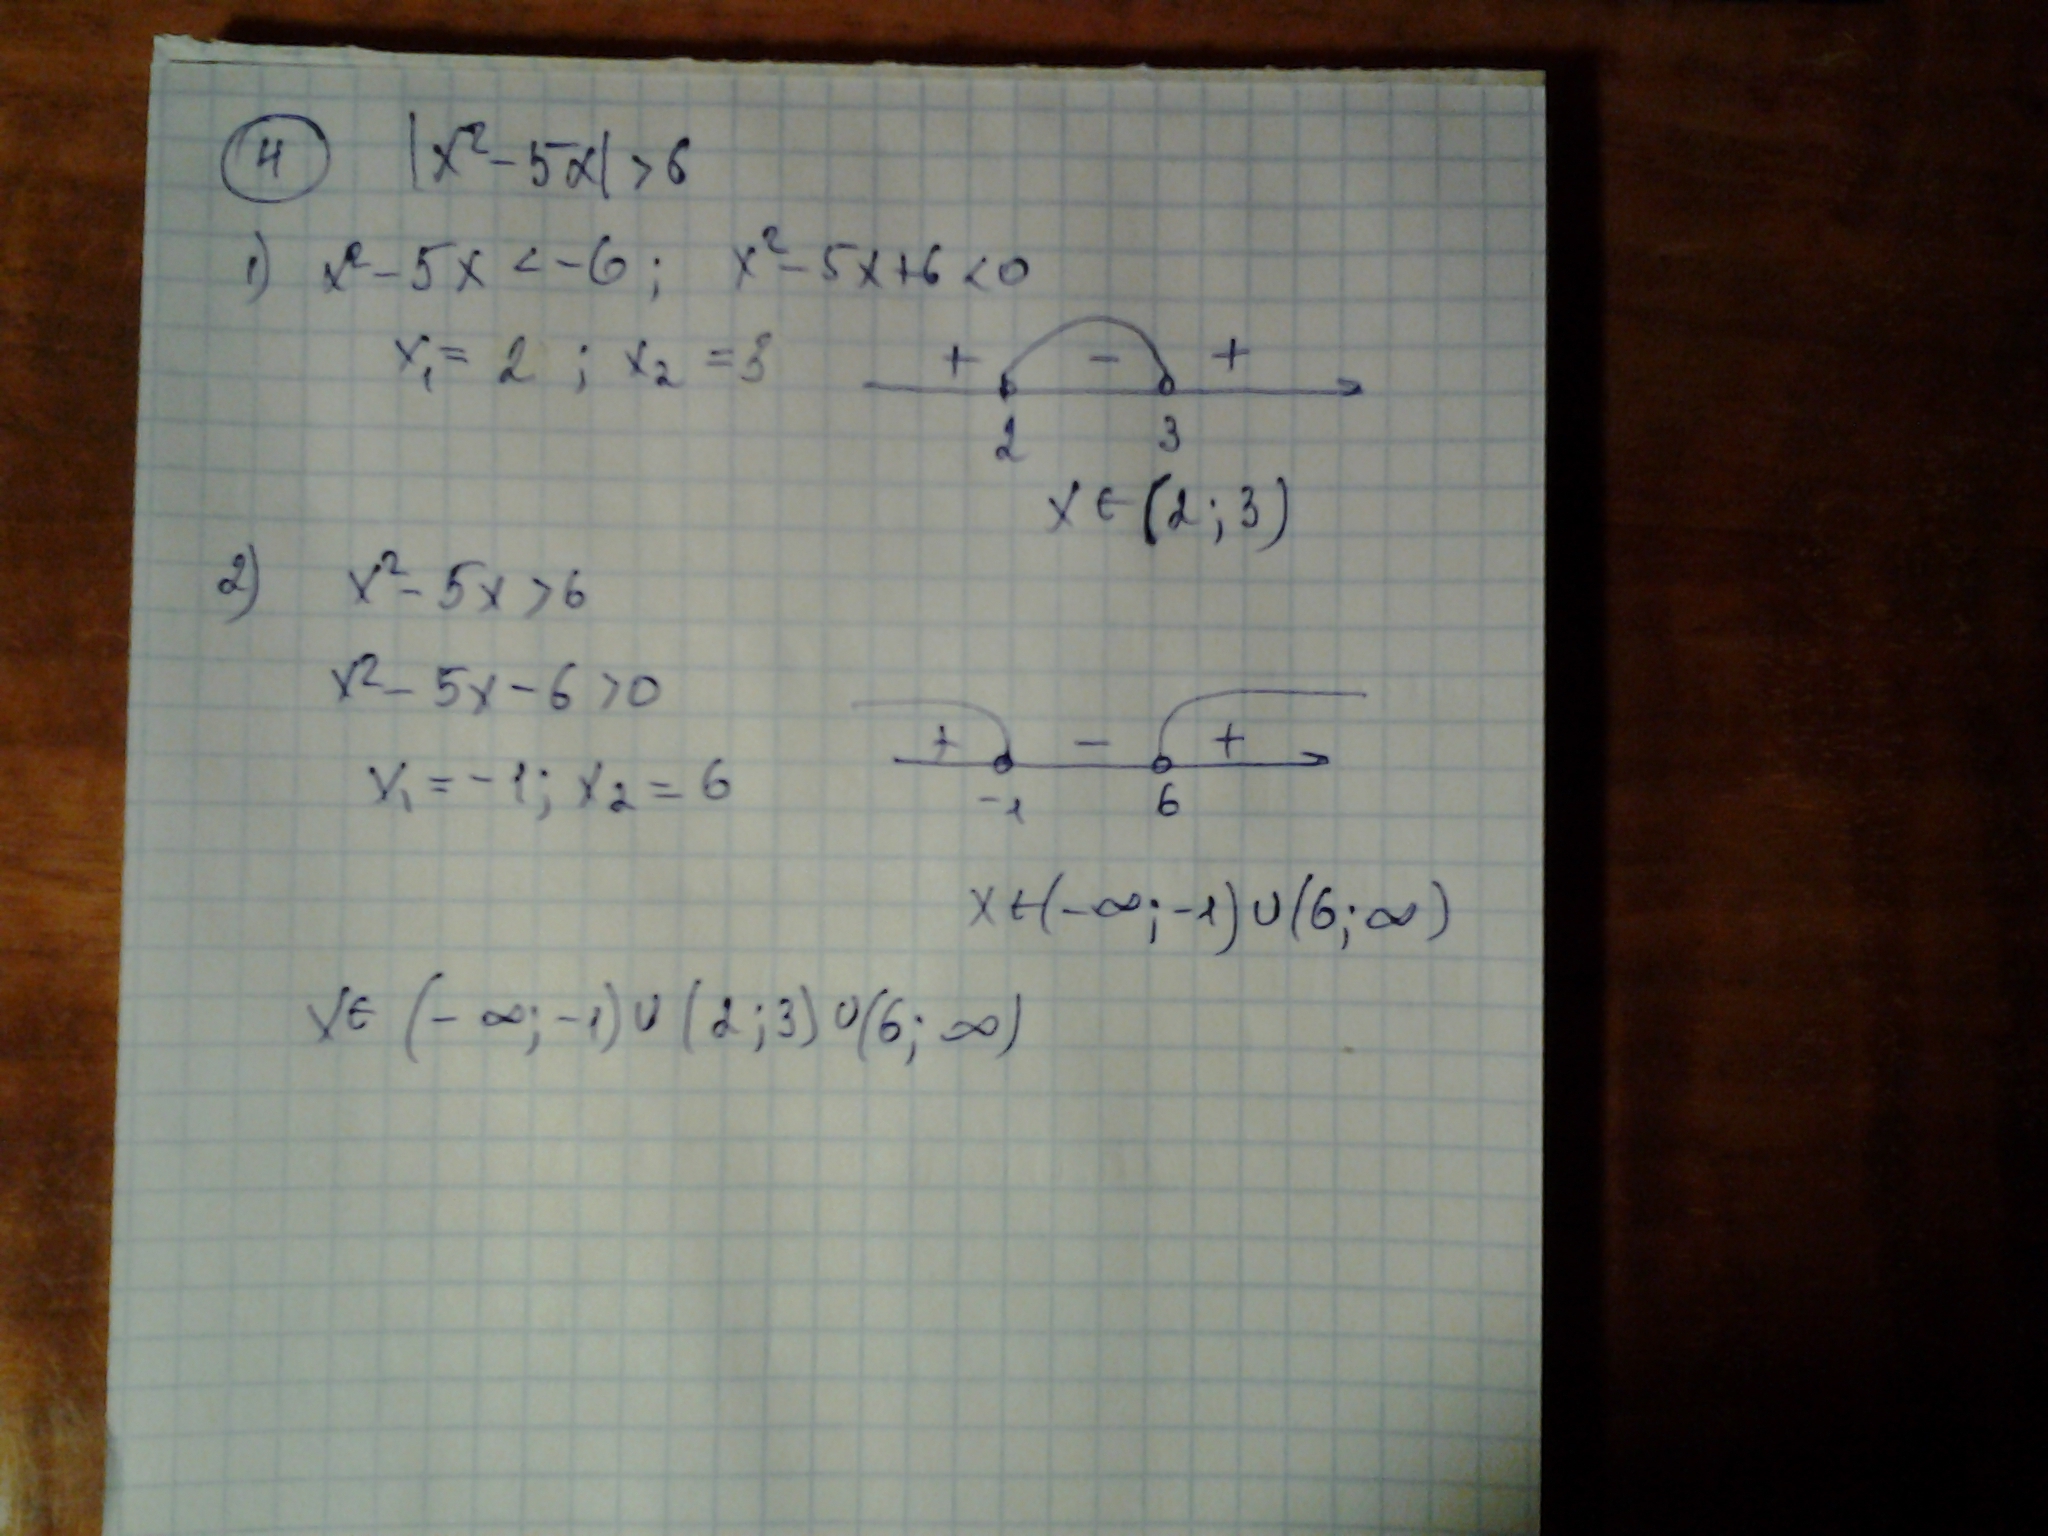 4 |x²-5x|>6
1) x²-5x<-6; x²-5x+6<0
x₁=2; x₂=3
+ - +
2 3
x∈(2;3)
2) x²-5x>6
x²-5x-6>0
x₁=-1; x₂=6
+ - +
-1 6
x∈(-∞;-1)∪(6;∞)
x∈(-∞;-1)∪(2;3)∪(6;∞)